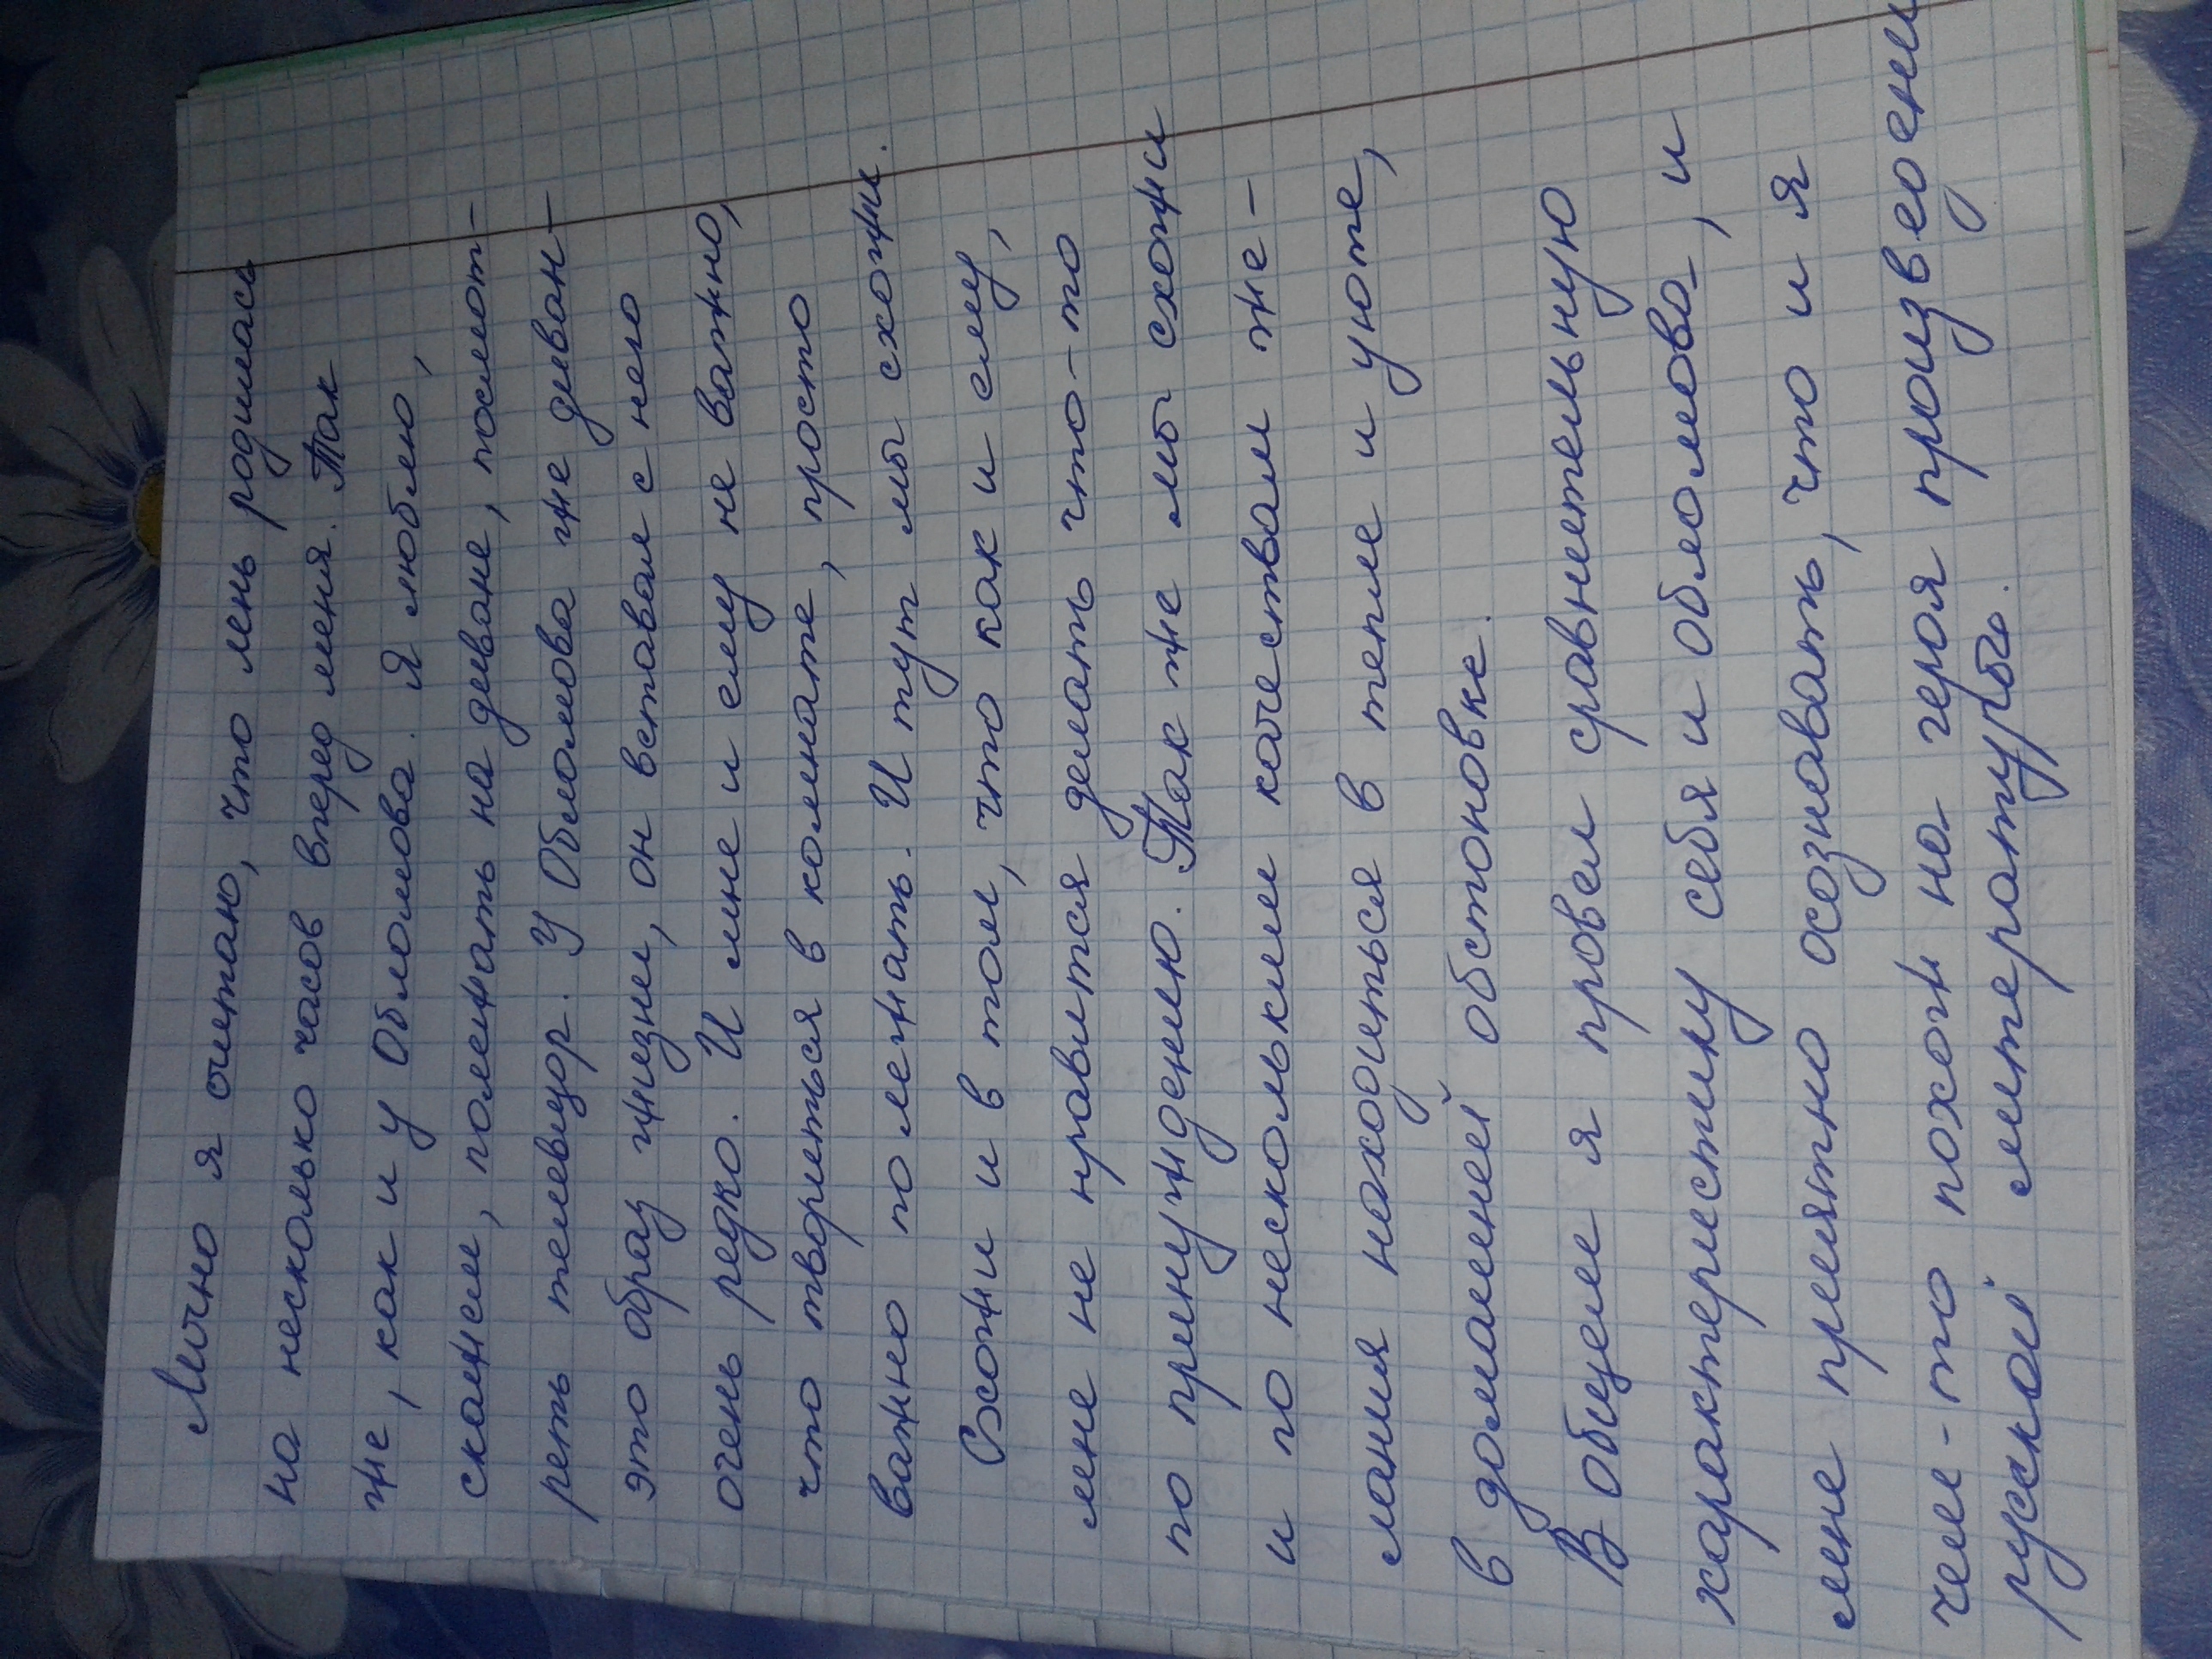 Лично я считаю, что лень родилась
на несколько часов вперед меня. Так
же, как и у Обломова. Я люблю,
скажем, полежать на диване, посмот-
реть телевизор. У Обломова же диван-
это образ жизни, он вставал с него
очень редко. И мне и ему не важно,
что твориться в комнате, просто
важно полежать. И тут мы схожи.
Схожи и в том, что как и ему,
мне не нравится делать что-то
по принуждению. Так же мы схожи
и по нескольким качествам же-
лания находиться в тепле и уюте,
в домашней обстановке.
В общем я провел сравнительную
характеристику себя и обломова, и
мне приятно осознавать, что и я
чем-то похож на героя произведени
русской литературы.